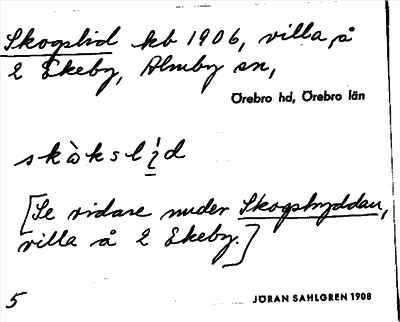 Skogslid kb 1906, villa, å
2 Ekeby, Almby sn,
Örebro hd, Örebro län
skòkslíd
[Se vidare under Skogshyddan,
villa å 2 Ekeby.]
5
JÖRAN SAHLGREN 1908